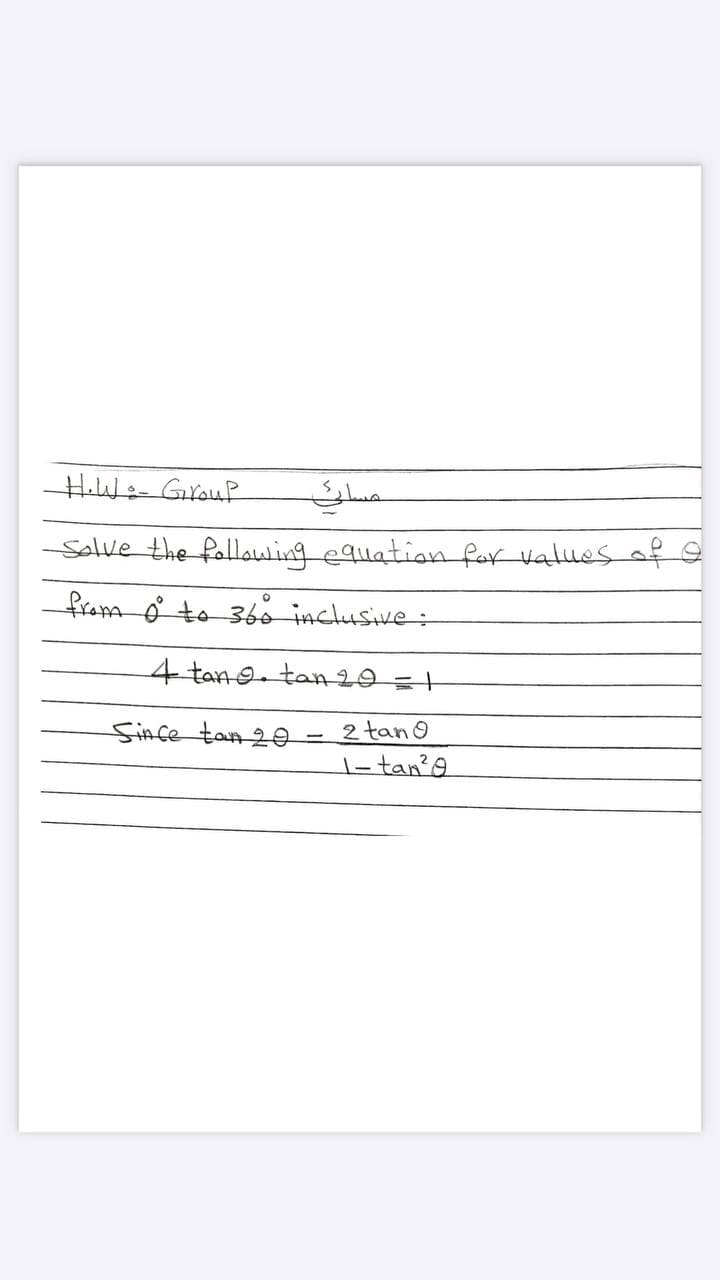 H.W :- Group مسائي
Solve the following equation for values of θ
from 0° to 360° inclusive :
4 tan θ . tan 2θ = 1
Since tan 2θ = 2 tan θ / 1 - tan² θ